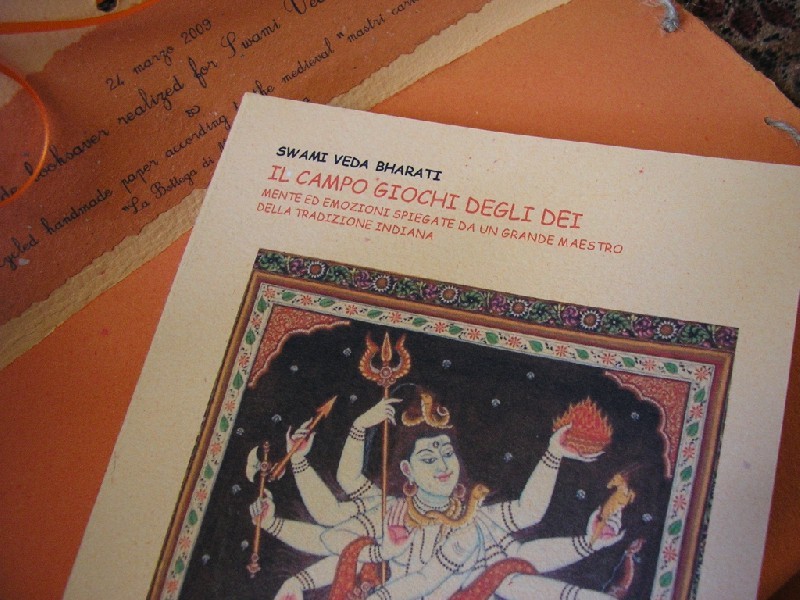 24 marzo 2009
booksaver realized for Swami
handmade paper according the medieval "mastri
La Bottega di
SWAMI VEDA BHARATI
IL CAMPO GIOCHI DEGLI DEI
MENTE ED EMOZIONI SPIEGATE DA UN GRANDE MAESTRO
DELLA TRADIZIONE INDIANA